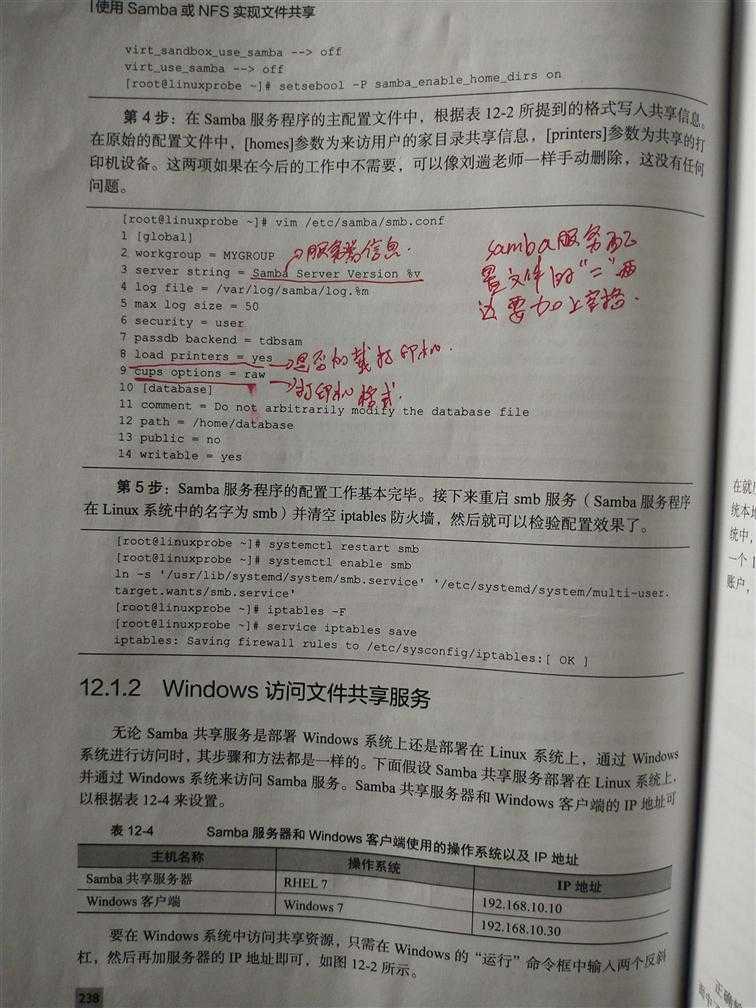 使用 Samba 或 NFS 实现文件共享
virt_sandbox_use_samba --> off
virt_use_samba --> off
[root@linuxprobe ~]# setsebool -P samba_enable_home_dirs on
第 4 步：在 Samba 服务程序的主配置文件中，根据表 12-2 所提到的格式写入共享信息。
在原始的配置文件中，[homes]参数为来访用户的家目录共享信息，[printers]参数为共享的打
印机设备。这两项如果在今后的工作中不需要，可以像刘遄老师一样手动删除，这没有任何
问题。
[root@linuxprobe ~]# vim /etc/samba/smb.conf
1 [global]
2 workgroup = MYGROUP
服务器信息.
3 server string = Samba Server Version %v
4 log file = /var/log/samba/log.%m
5 max log size = 50
6 security = user
7 passdb backend = tdbsam
8 load printers = yes
是否加载打印机.
9 cups options = raw
打印机格式.
10 [database]
11 comment = Do not arbitrarily modify the database file
12 path = /home/database
13 public = no
14 writable = yes
samba服务配
置文件的“=”两
边要加上空格.
第 5 步：Samba 服务程序的配置工作基本完毕。接下来重启 smb 服务（Samba 服务程序
在 Linux 系统中的名字为 smb）并清空 iptables 防火墙，然后就可以检验配置效果了。
[root@linuxprobe ~]# systemctl restart smb
[root@linuxprobe ~]# systemctl enable smb
ln -s '/usr/lib/systemd/system/smb.service' '/etc/systemd/system/multi-user.
target.wants/smb.service'
[root@linuxprobe ~]# iptables -F
[root@linuxprobe ~]# service iptables save
iptables: Saving firewall rules to /etc/sysconfig/iptables:[ OK ]
12.1.2 Windows 访问文件共享服务
无论 Samba 共享服务是部署 Windows 系统上还是部署在 Linux 系统上，通过 Windows
系统进行访问时，其步骤和方法都是一样的。下面假设 Samba 共享服务部署在 Linux 系统上，
并通过 Windows 系统来访问 Samba 服务。Samba 共享服务器和 Windows 客户端的 IP 地址可
以根据表 12-4 来设置。
表 12-4 Samba 服务器和 Windows 客户端使用的操作系统以及 IP 地址
主机名称 操作系统 IP 地址
Samba 共享服务器 RHEL 7 192.168.10.10
Windows 客户端 Windows 7 192.168.10.30
要在 Windows 系统中访问共享资源，只需在 Windows 的“运行”命令框中输入两个反斜
杠，然后再加服务器的 IP 地址即可，如图 12-2 所示。
238
在就
统本地
统中，
一个
账户，
正确